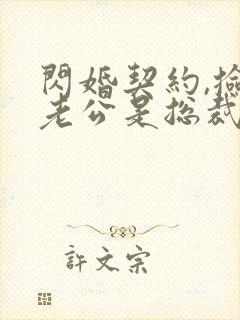 閃婚契約,撿
老公是总裁
許文宗